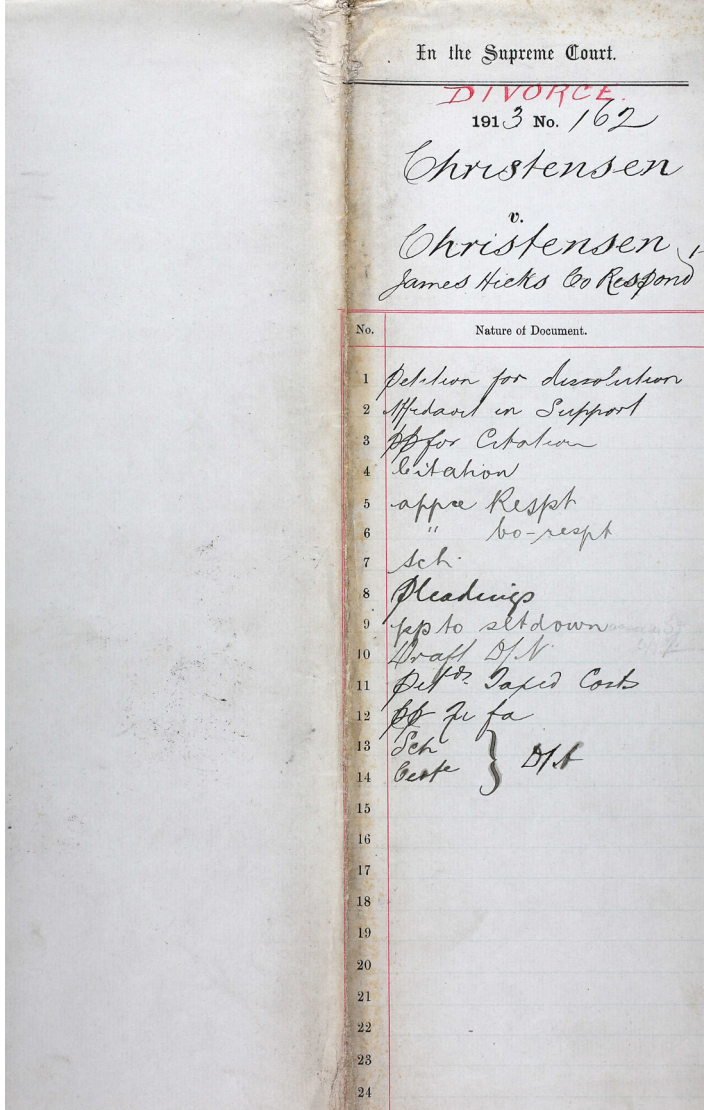 In the Supreme Court.
DIVORCE.
1913 No. 162
Christensen
v.
Christensen
James Hicks Co Respond
No. Nature of Document.
1 Petition for dissolution
2 Affidavit in Support
3 pp for Citation
4 Citation
5 appce Respt
6 " Co-respt
7 Sch.
8 Pleadings
9 pp to set down
10 Draft D/N.
11 Taxed Costs
12 pp Fi fa
13 Sch } D/A
14 Certe
15
16
17
18
19
20
21
22
23
24